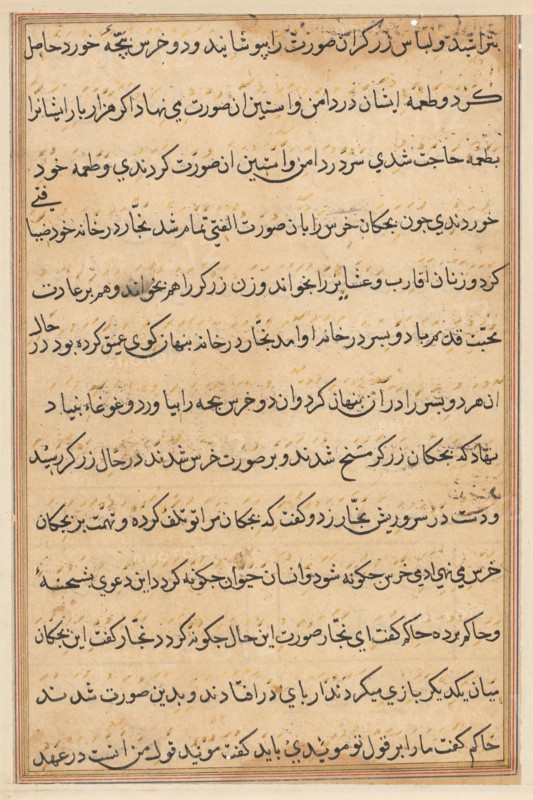 بتراشید و لباس زرکران صورت را بپوشانید و دو خرس بچهٔ خورد حاصل
کرد و طعمه ایشان در دامن و استین آن صورت می نهاد اکر هزار بار ایشانرا
بطعمه حاجت شدی سر در دامن و استین ان صورت کردندی و طعمه خود
خوردندی جون بجکان خرس را بان صورت الفتی تمام شد نجار در خانه خود ضیافتی
کرد و زنان اقارب و عشایر را بخواند و زن زرکر را هم بخواند و هم بر عادت
محبت قدیم با دو بسر در خانه او امد نجار در خانه بنهان کوی عمیق کرده بود در حال
آن هر دو بسر را در آن بنهان کرد و ان دو خرس بجه را بیاورد و غوغاء بنیاد
نهاد که بجکان زرکر مسخ شدند و بر صورت خرس شدند در حال زرکر رسید
و دست در سر و ریش نجار زد و کفت که بجکان مرا تو تلف کرده و تهمت بر بجکان
خرس می نهی ادمی خرس جکونه شود و انسان حیوان جکونه کردد این دعوی بشحنهٔ
و حاکم برده حاکم کفت ای نجار صورت این حال جکونه کردد نجار کفت این بجکان
میان یکدیکر بازی میکردند از بای در افتادند و بدین صورت شدند
حاکم کفت ما را بر قول تو مویدی باید کفت موید قول من انست در عهد